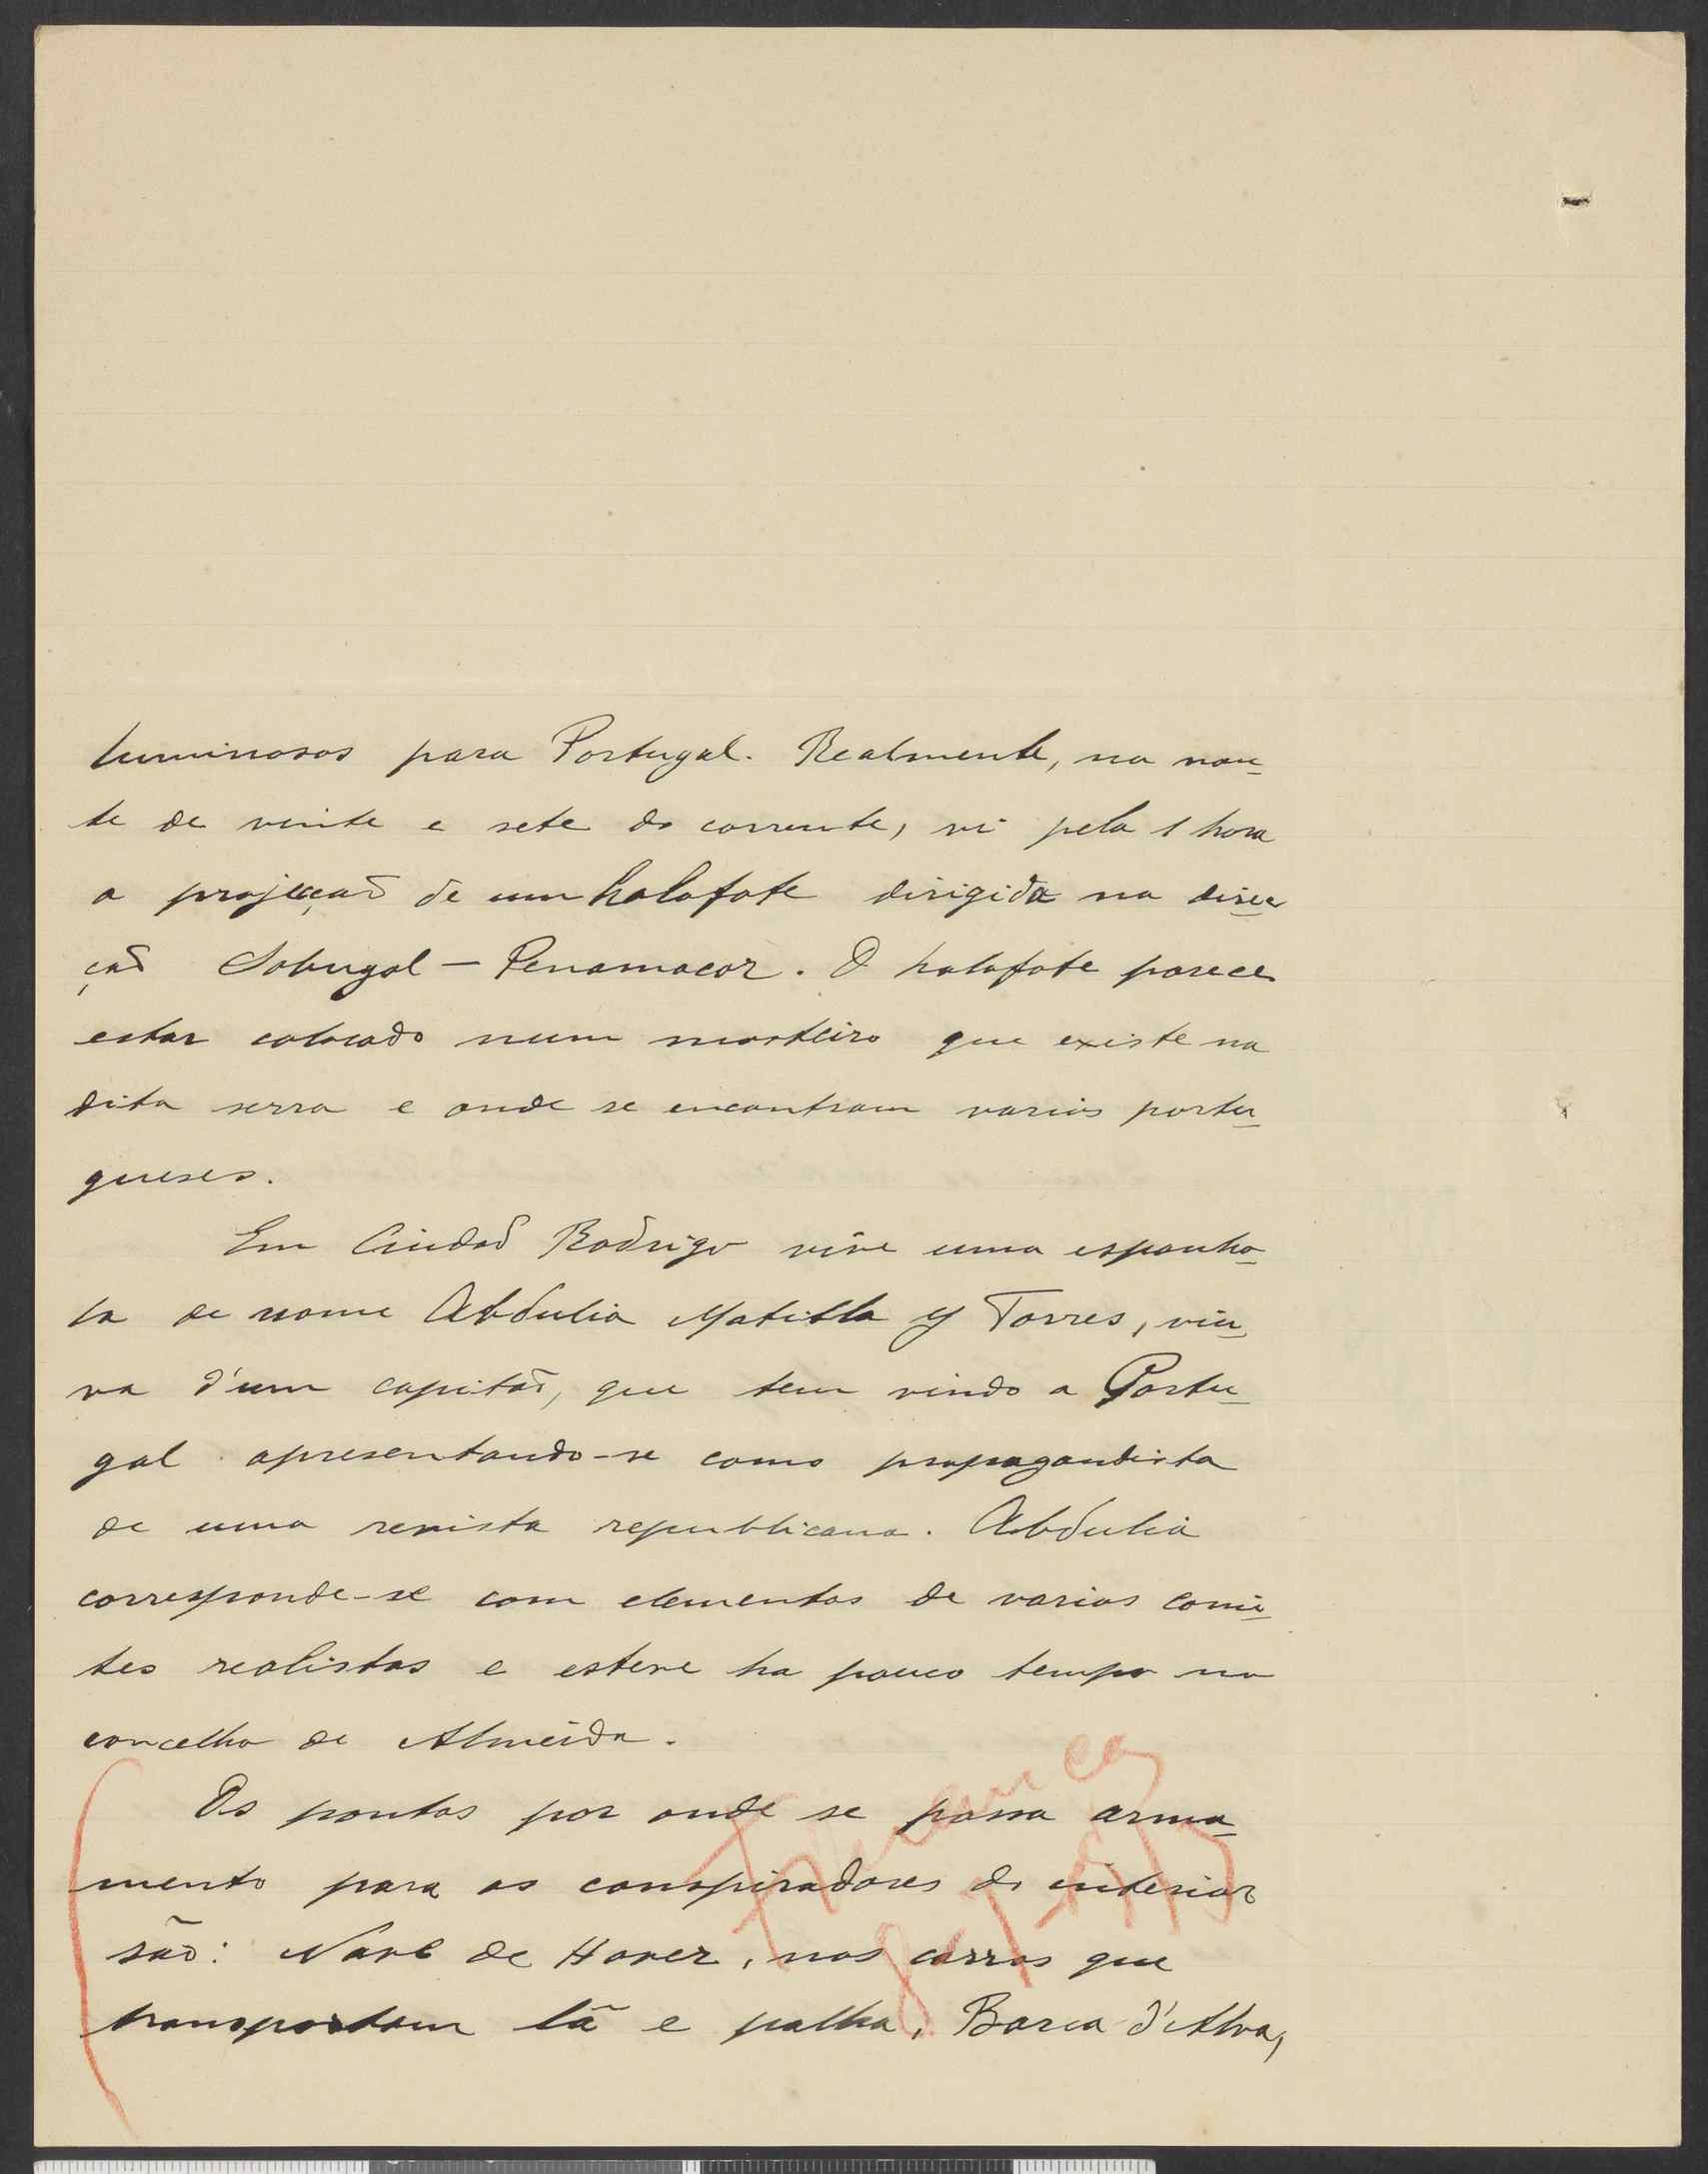 luminosos para Portugal. Realmente, na nou-
te de vinte e sete do corrente, vi pela 1 hora
a projecção de um holofote dirigida na direc-
ção Sabugal — Penamacor. O holofote parece
estar colocado num mosteiro que existe na
dita serra e onde se encontram varios portu-
gueses.
Em Ciudad Rodrigo vive uma espanho-
la de nome Abdulia Matilla y Torres, viu-
va d'um capitão, que tem vindo a Portu-
gal apresentando-se como propagandista
de uma revista republicana. Abdulia
corresponde-se com elementos de varios comi-
tes realistas e esteve ha pouco tempo no
concelho de Almeida.
Os pontos por onde se passa arma-
mento para os conspiradores do interior
são: Nave de Haver, nos carros que
transportam lã e palha, Barca d'Alva,